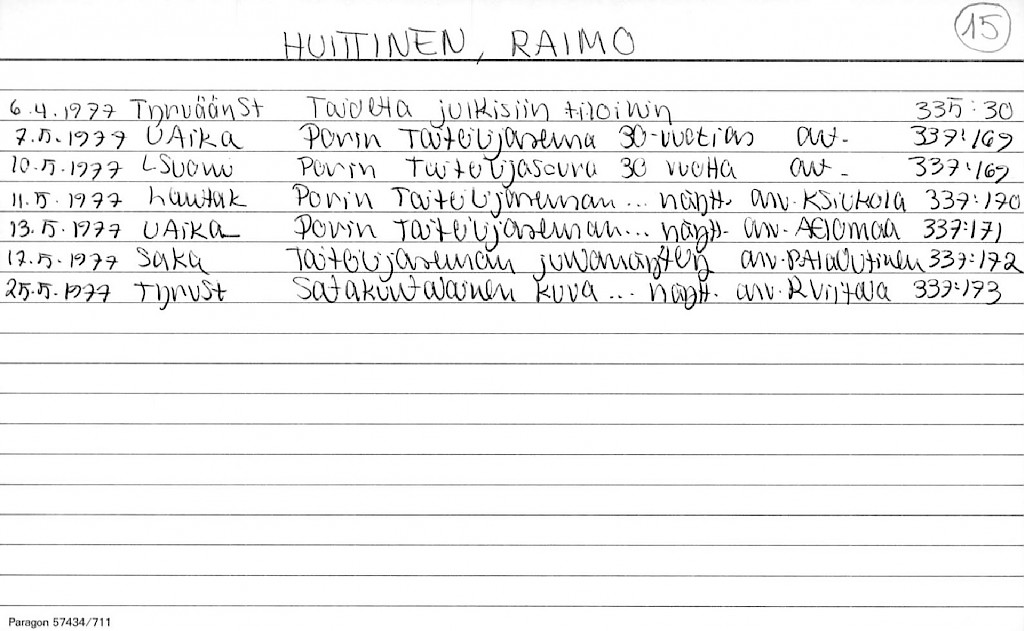 15
HUITTINEN, RAIMO
6.4.1977 TyrväänSt Taidetta julkisiin tiloihin 335:30
7.5.1977 UAika Porin Taiteilijaseura 30-vuotias art. 337:169
10.5.1977 LSuomi Porin Taiteilijaseura 30 vuotta art. 337:169
11.5.1977 Lauttak Porin Taiteilijaseuran... näytt. arv. KSiukola 337:170
13.5.1977 UAika Porin Taiteilijaseuran... näytt. arv. 337:171
17.5.1977 SaKa Taiteilijaseuran juhlanäyttely arv. 337:172
25.5.1977 TyrvSt Satakuntalainen kuva... näytt. arv. RViitala 337:173
Paragon 57434/711